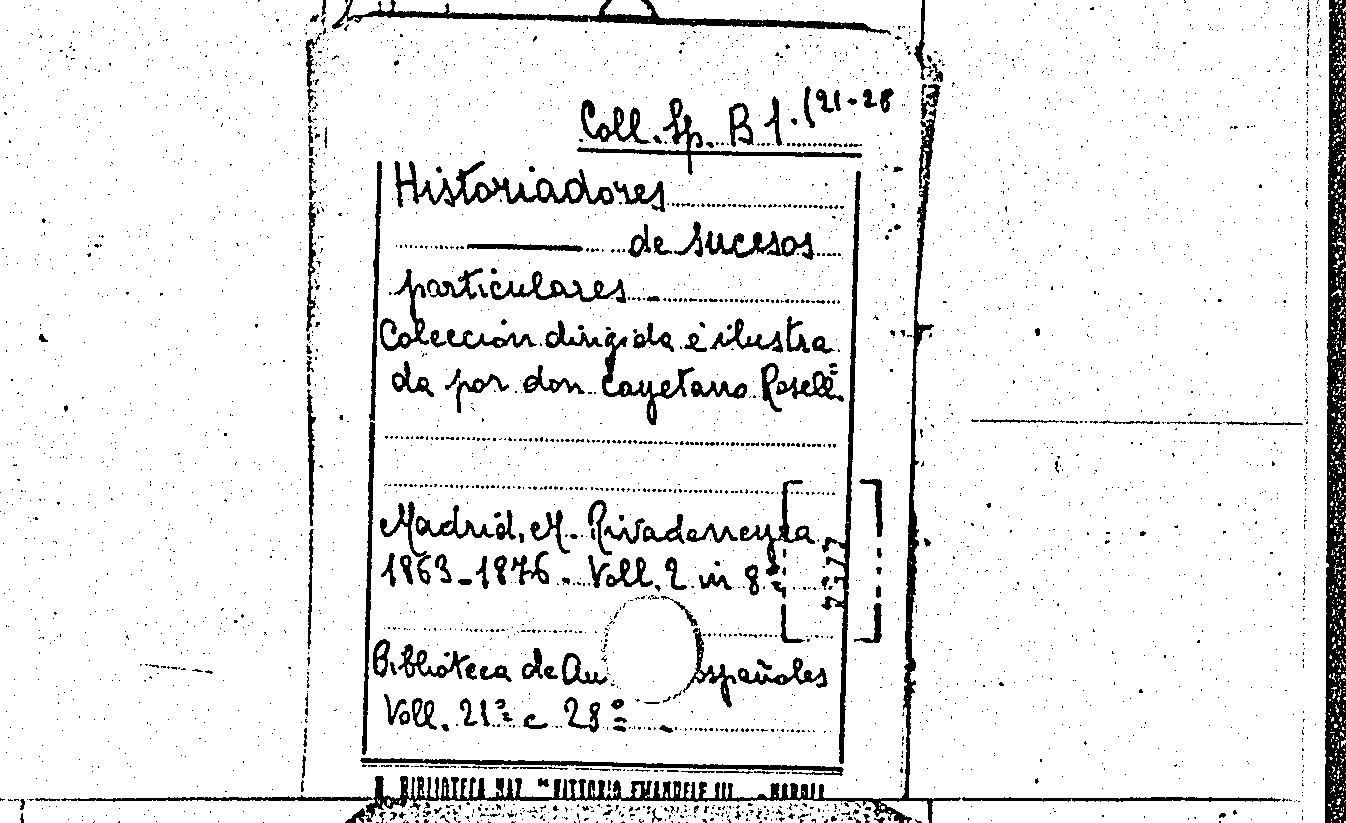 Coll. Sp. B 1. (21-28
Historiadores
de sucesos
particulares.
Colección dirigida é ilustra
da por don Cayetano Rosell.
Madrid, M. Rivadeneyra
1863-1876. Voll. 2 in 8º
Biblioteca de Au españoles
Voll. 21º e 28º.
R. BIBLIOTECA NAZ. "VITTORIO EMANUELE III" - NAPOLI